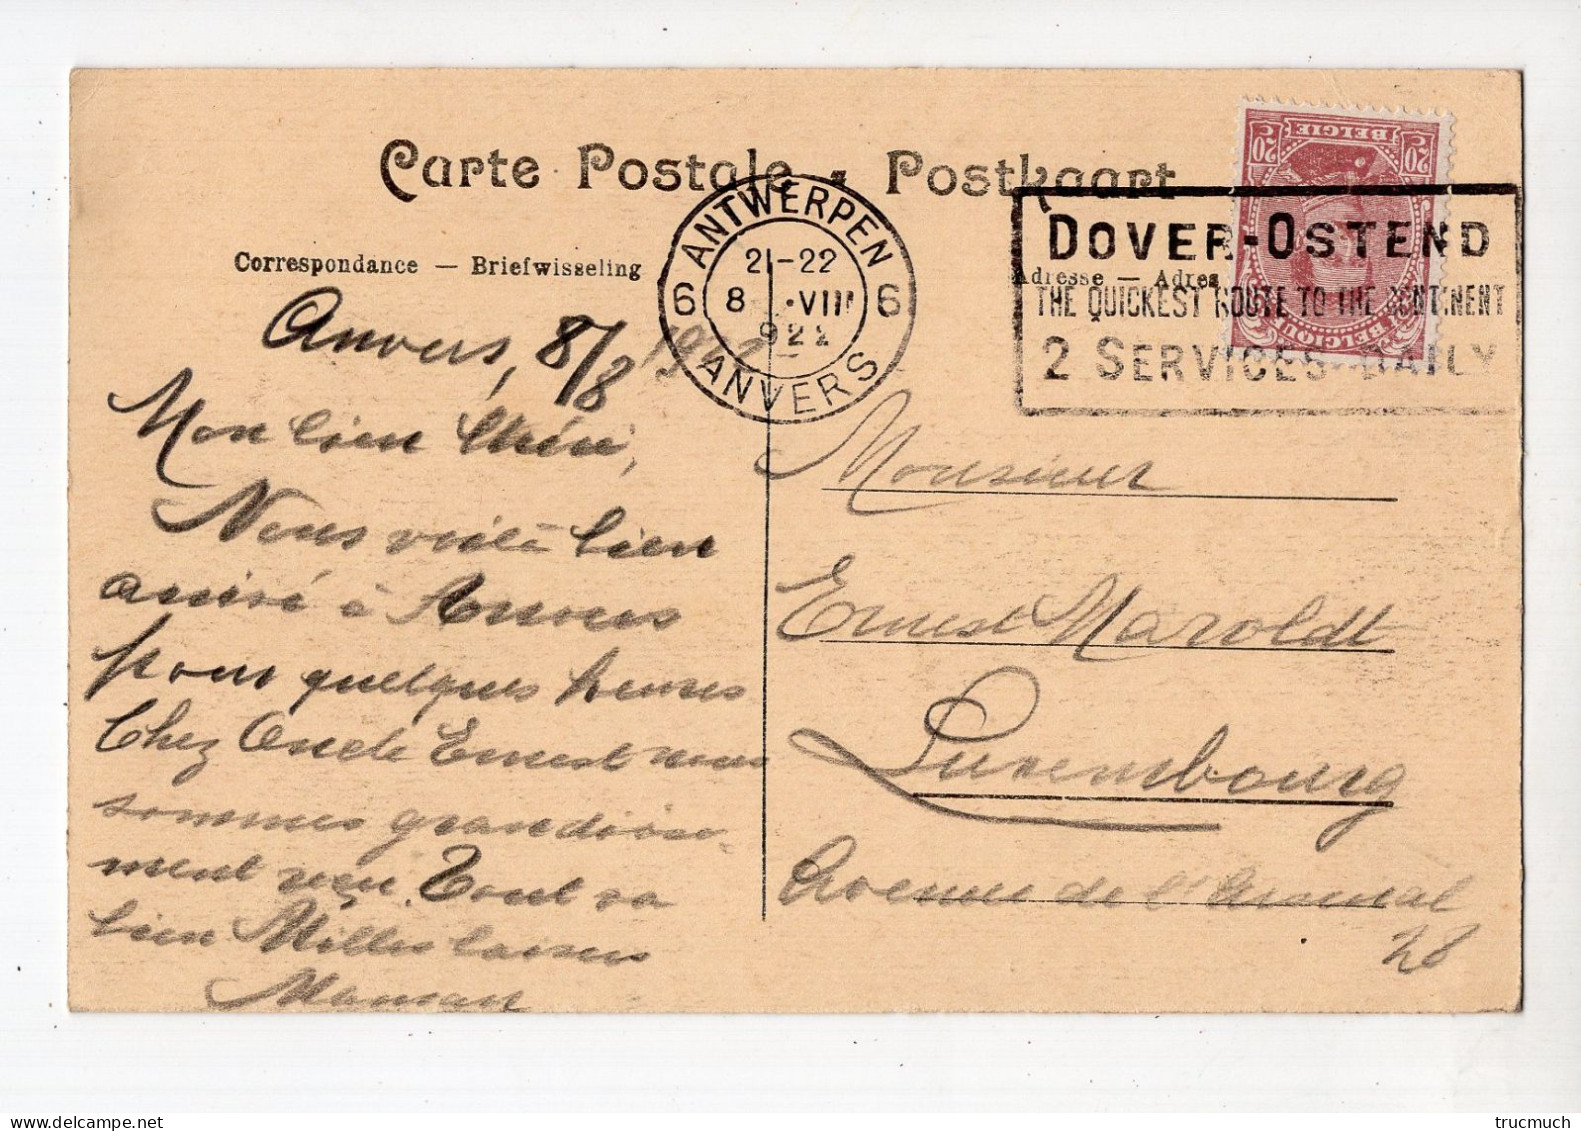 Carte Postale - Postkaart
Correspondance — Briefwisseling
Adresse — Adres
20c BELGIE 20c
BELGIQUE
ANTWERPEN
6 21-22 6
8 VIII
922
ANVERS
DOVER-OSTEND
THE QUICKEST ROUTE TO THE CONTINENT
2 SERVICES DAILY
Anvers, 8/8 1922
Mon bien Chéri,
Nous voilà bien
arrivé à Anvers
pour quelques heures
Chez Oncle Ernest nous
sommes grandiose-
ment reçu. Tout va
bien Milles baisers
Maman
Monsieur
Ernest Maroldt
Luxembourg
Avenue de l'Arsenal
28
trucmuch